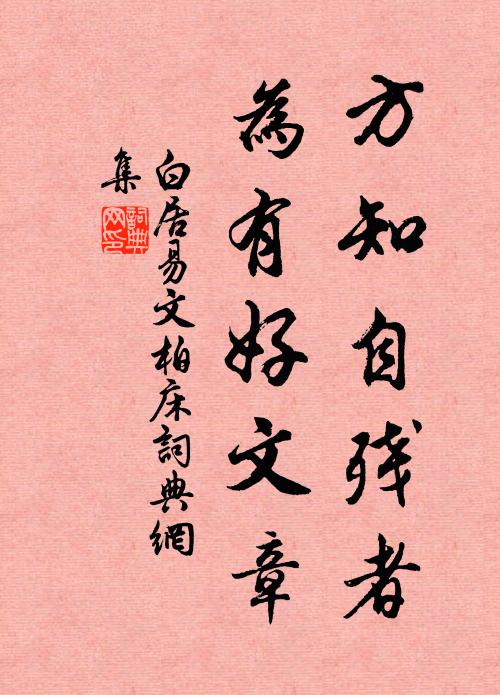 方知自残者
為有好文章
白居易文柏床詞典網
集
詞典网印